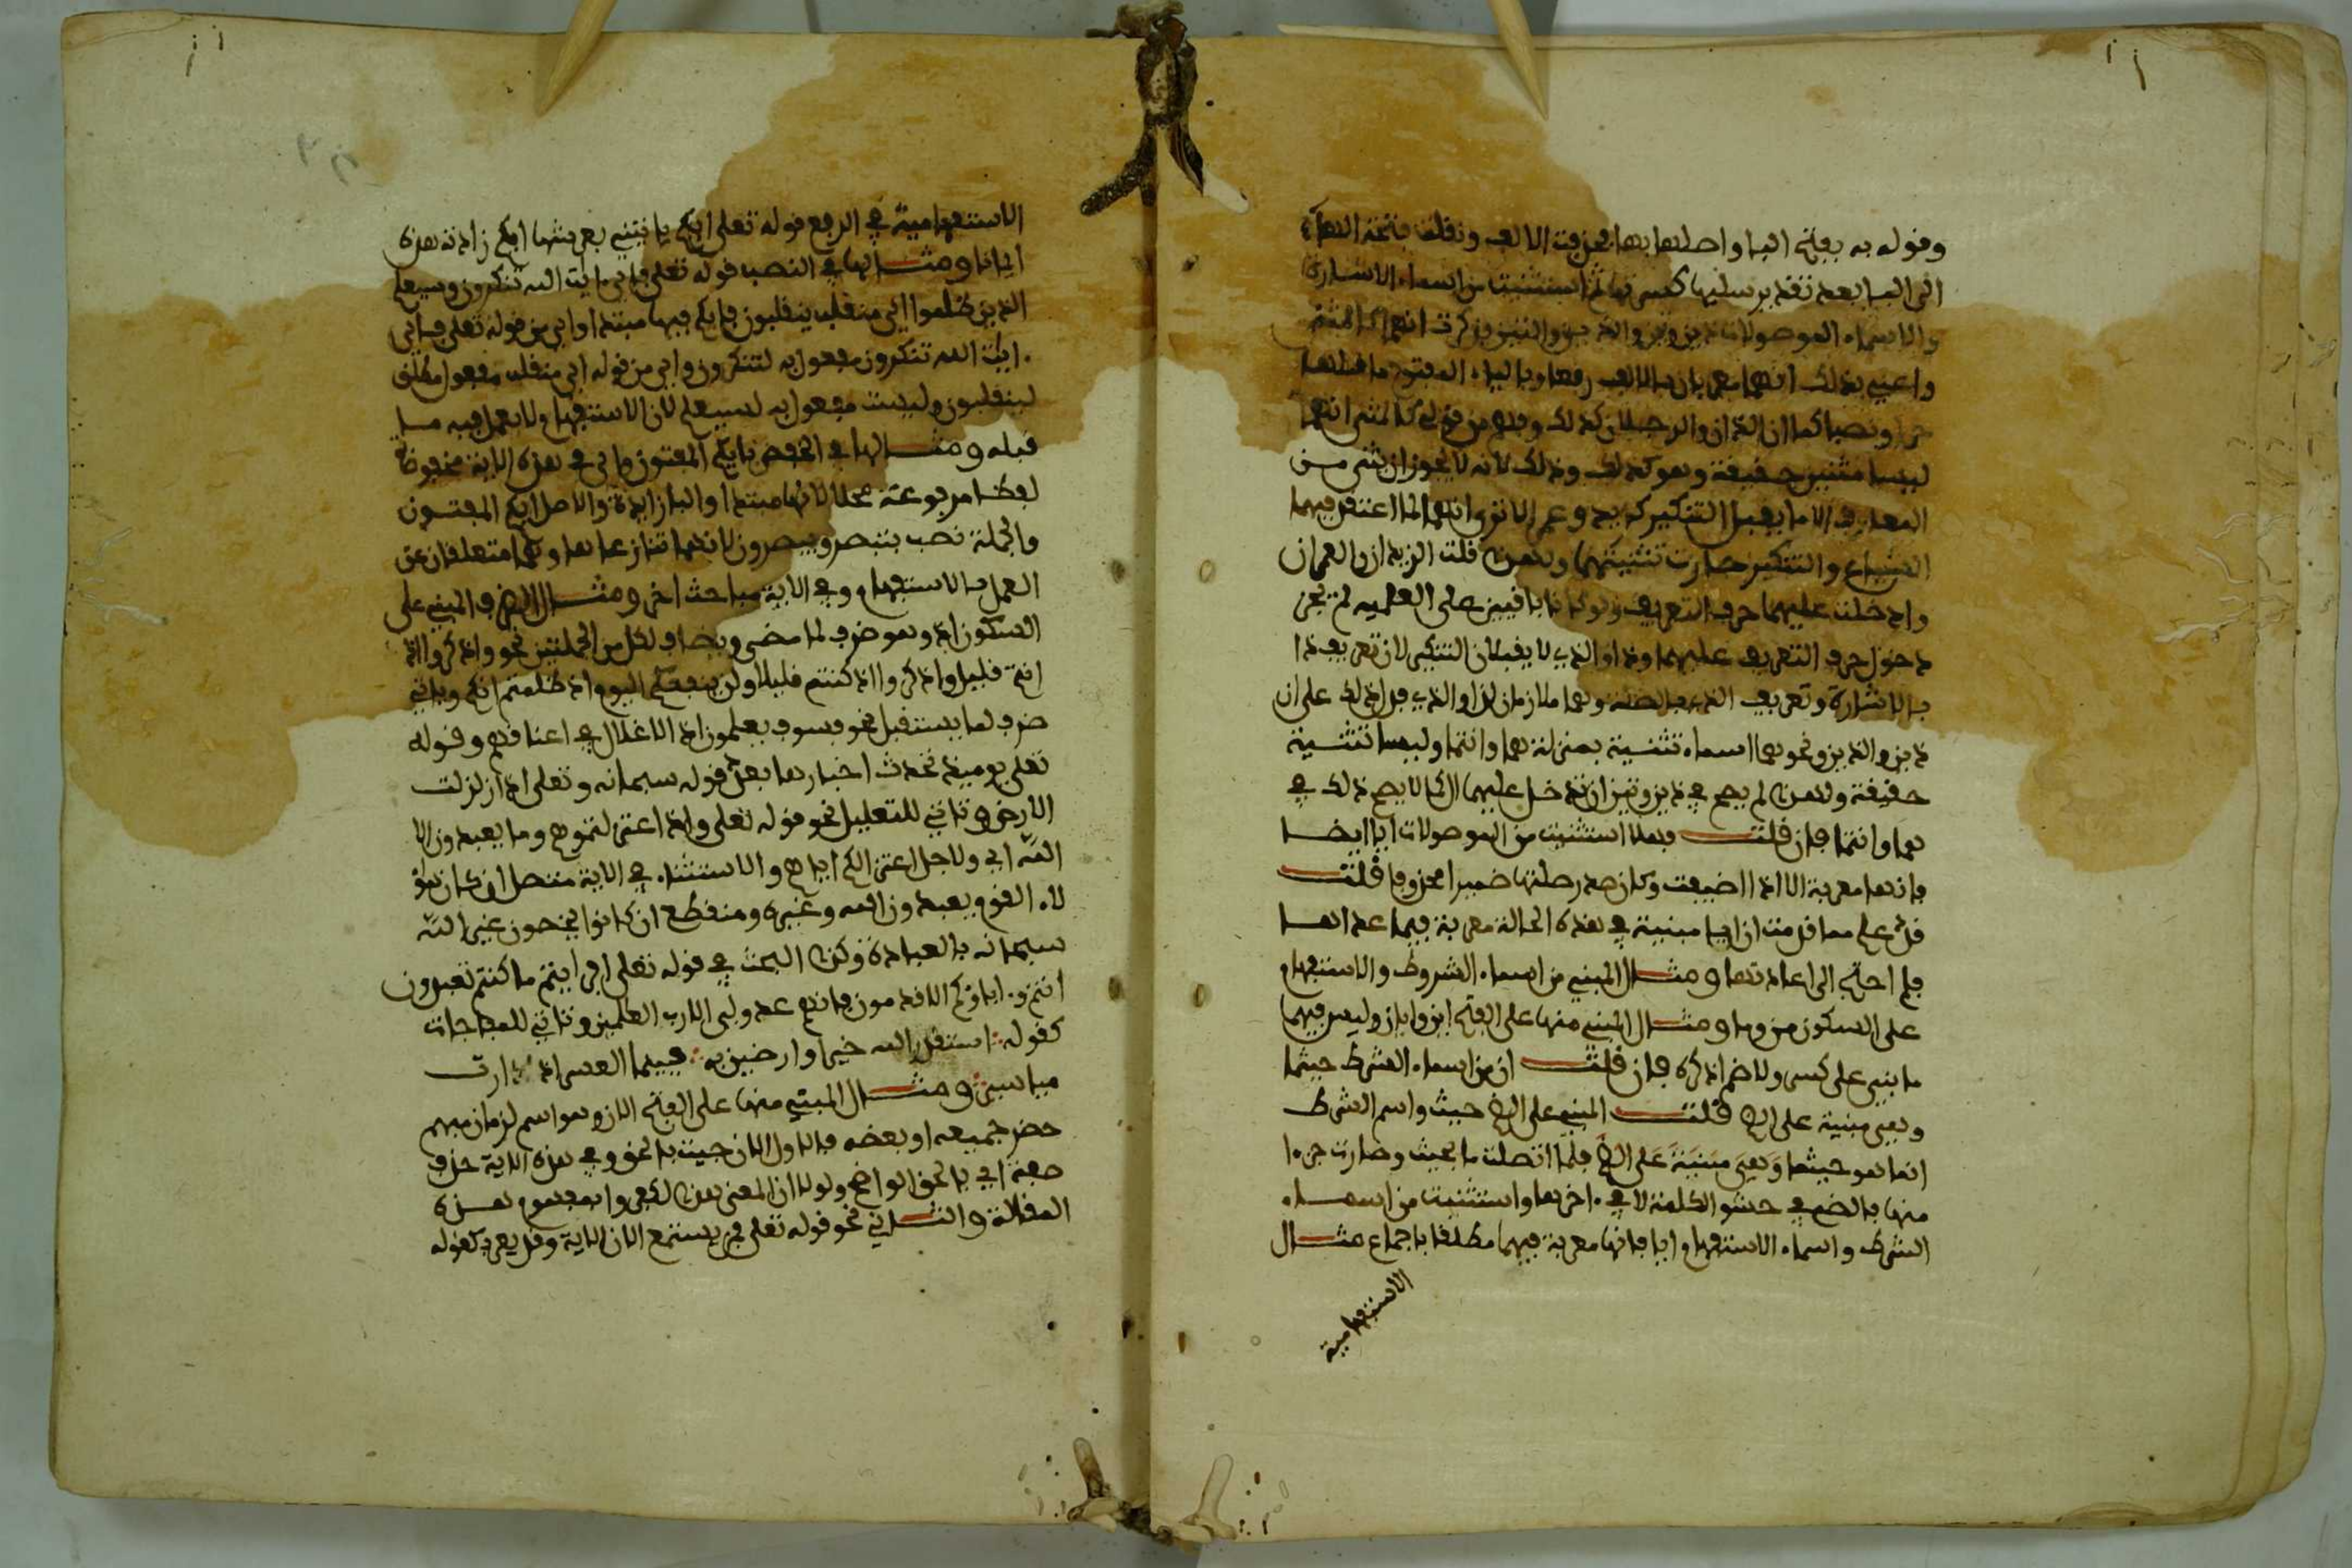 وقوله به بفتح البا واصلها بها فحذفت الالف ونقلت فتحة الهاء
الى البا بعد تقدير سلبها كسرتها ثم استثنيت من اسماء الاشارة
والاسماء الموصولات ذين وتين والذين والتين فذكرت انهما كالمثنى
واعني بذلك انهما معربان بالالف رفعا وبالياء المفتوح ما قبلها
جرا ونصبا كما ان الزيدان والرجلان كذلك وفهم من قولي كالمثنى انهما
ليسا مثنيين حقيقة وهو كذلك وذلك لانه لا يجوز ان يثنى من
المعارف الا ما يقبل التنكير كزيد وعمر الا ترى انهما لما اعتقد فيهما
الشياع والتنكير صارت تثنيتهما ولهذا قلت الزيدان والعمران
وادخلت عليهما حرف التعريف ولو كانا باقيين على العلمية لم يجز
دخول حرف التعريف عليهما وذا والذي لا يقبلان التنكير لان تعريف ذا
بالاشارة وتعريف الذي بالصلة وهما ملازمان لذا والذي فدل ذلك على ان
ذين والذين ونحوهما اسماء تثنية بمنزلة هما وانتما وليسا تثنية
حقيقة ولهذا لم يصح في ذين وتين ان تدخل عليهما ال كما لا يصح ذلك في
هما وانتما فان قلت فهلا استثنيت من الموصولات ايا ايضا
فانها معربة الا اذا اضيفت وكان صدر صلتها ضميرا محذوفا قلت
قد علم مما قدمت ان ايا مبنية في هذه الحالة معربة فيما عداها
فلم احتج الى اعادتها ومثال المبني من اسماء الشروط والاستفهام
على السكون من وما ومثال المبني منها على الفتح اين وايان وليس فيهما
ما بني على كسر ولا ضم اذكره فان قلت ان من اسماء الشرط حيثما
وهي مبنية على الضم قلت المبني على الضم حيث واسم الشرط
انما هو حيثما وهي مبنية على الفتح فلما اتصلت ما بحيث وصارت جزءا
منها فالضم في حشو الكلمة لا في اخرها واستثنيت من اسماء
الشرط واسماء الاستفهام ايا فانها معربة فيهما مطلقا باجماع مثال
الاستفهامية
الاستفهامية في الرفع قوله تعلى ايكم ياتيني بعرشها ايكم زادته هذه
ايمانا ومثالها في النصب قوله تعلى فاي ايت الله تنكرون وسيعلم
الذين ظلموا اي منقلب ينقلبون فايكم فيهما مبتدا واي من قوله تعلى فاي
ايت الله تنكرون مفعول به لتنكرون واي من قوله اي منقلب مفعول مطلق
لينقلبون وليست مفعول به لسيعلم لان الاستفهام لا يعمل فيه ما
قبله ومثالها في الخفض بايكم المفتون واي في هذه الاية مخفوضة
لفظا مرفوعة محلا لانها مبتدا والبا زايدة والاصل ايكم المفتون
والجملة نصب بتبصر ويبصرون لانهما تنازعاها وهما متعلقان عن
العمل بالاستفهام وفي الاية مباحث اخر ومثال الظرف المبني على
السكون اذ وهو ظرف لما مضى ويضاف لكل من الجملتين نحو واذكروا اذ
انتم قليل واذكروا اذ كنتم قليلا ولن ينفعكم اليوم اذ ظلمتم انكم وياتي
ظرف لما يستقبل نحو فسوف يعلمون اذ الاغلال في اعناقهم وقوله
تعلى يوميذ تحدث اخبارها بعد قوله سبحانه وتعلى اذا زلزلت
الارض وتاتي للتعليل نحو قوله تعلى واذ اعتزلتموهم وما يعبدون الا
الله اي ولاجل اعتزالكم اياهم والاستثناء في الاية متصل ان كان هؤ
لاء القوم يعبدون الله وغيره ومنقطع ان كانوا يخصون غير الله
سبحانه بالعبادة وكذا البحث في قوله تعلى افرايتم ما كنتم تعبدون
انتم وءاباؤكم الاقدمون فانهم عدو لي الا رب العلمين وتاتي للمفاجات
كقوله استقدر الله خيرا وارضين به فبينما العسر اذ دارت
مياسير ومثال المبني منها على الفتح الان وهو اسم لزمان مبهم
حضر جميعه او بعضه فالاول الان جيت بالحق وفي هذه الاية حذف
صفة اي بالحق الواضح ولولا ان المعنى هذا لكفروا لمفهوم هذه
المقالة والثاني نحو قوله تعلى فمن يستمع الان الاية وقد يعرب كقوله